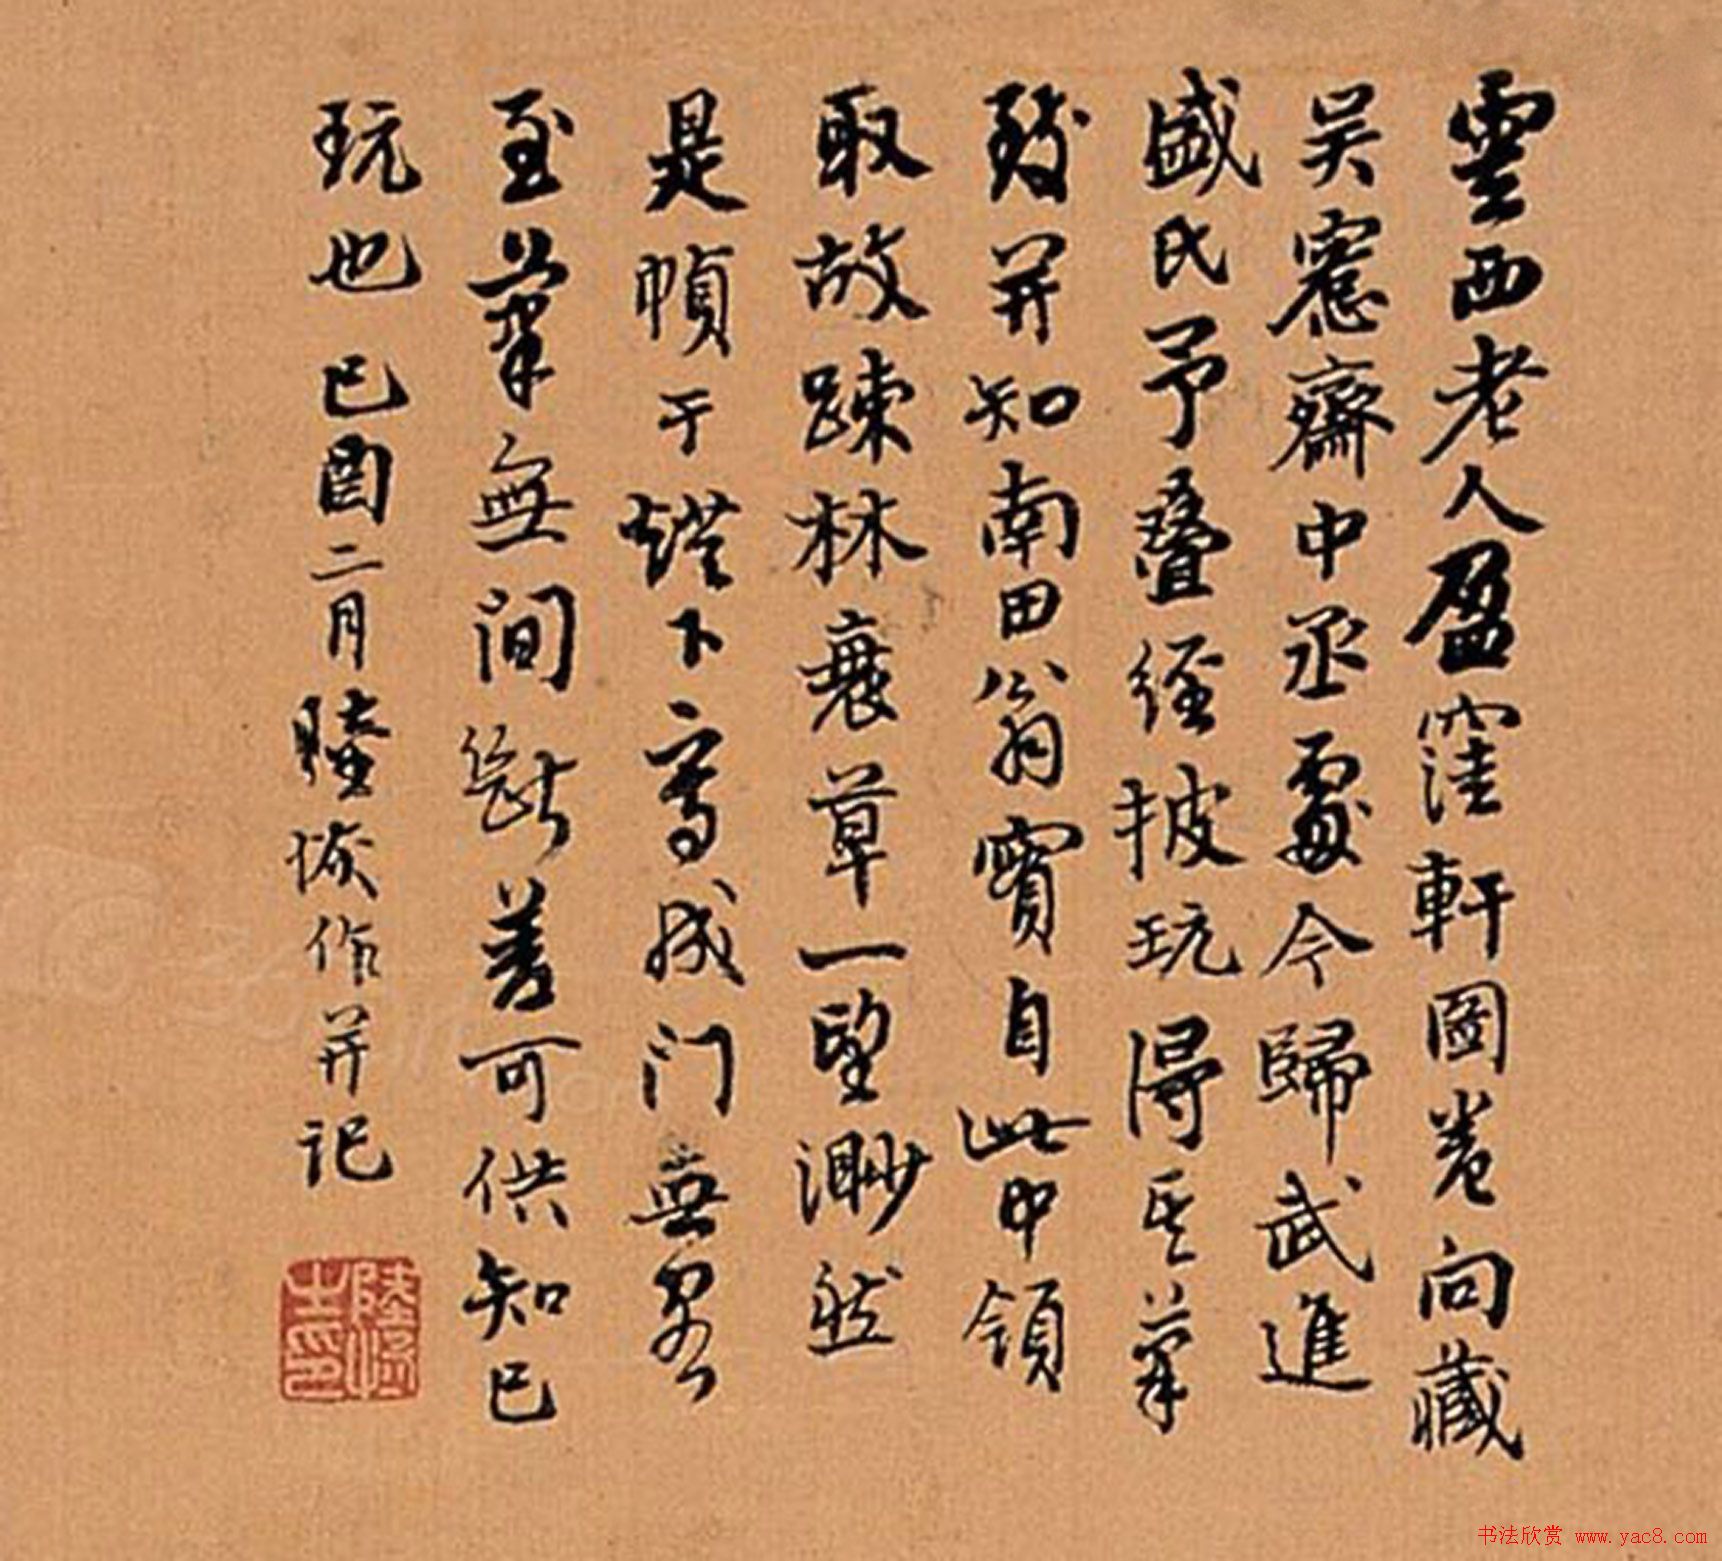 雲西老人盈窪軒圖卷向藏
吳愙齋中丞處今歸武進
盛氏予疊經披玩得其筆
致并知南田翁實自此中領
取故疎林衰草一望渺然
是幀于燈下寫成門無客
至筆無間斷差可供知己
玩也己酉二月陸恢作并記
陸恢之印
书法欣赏 www.yac8.com